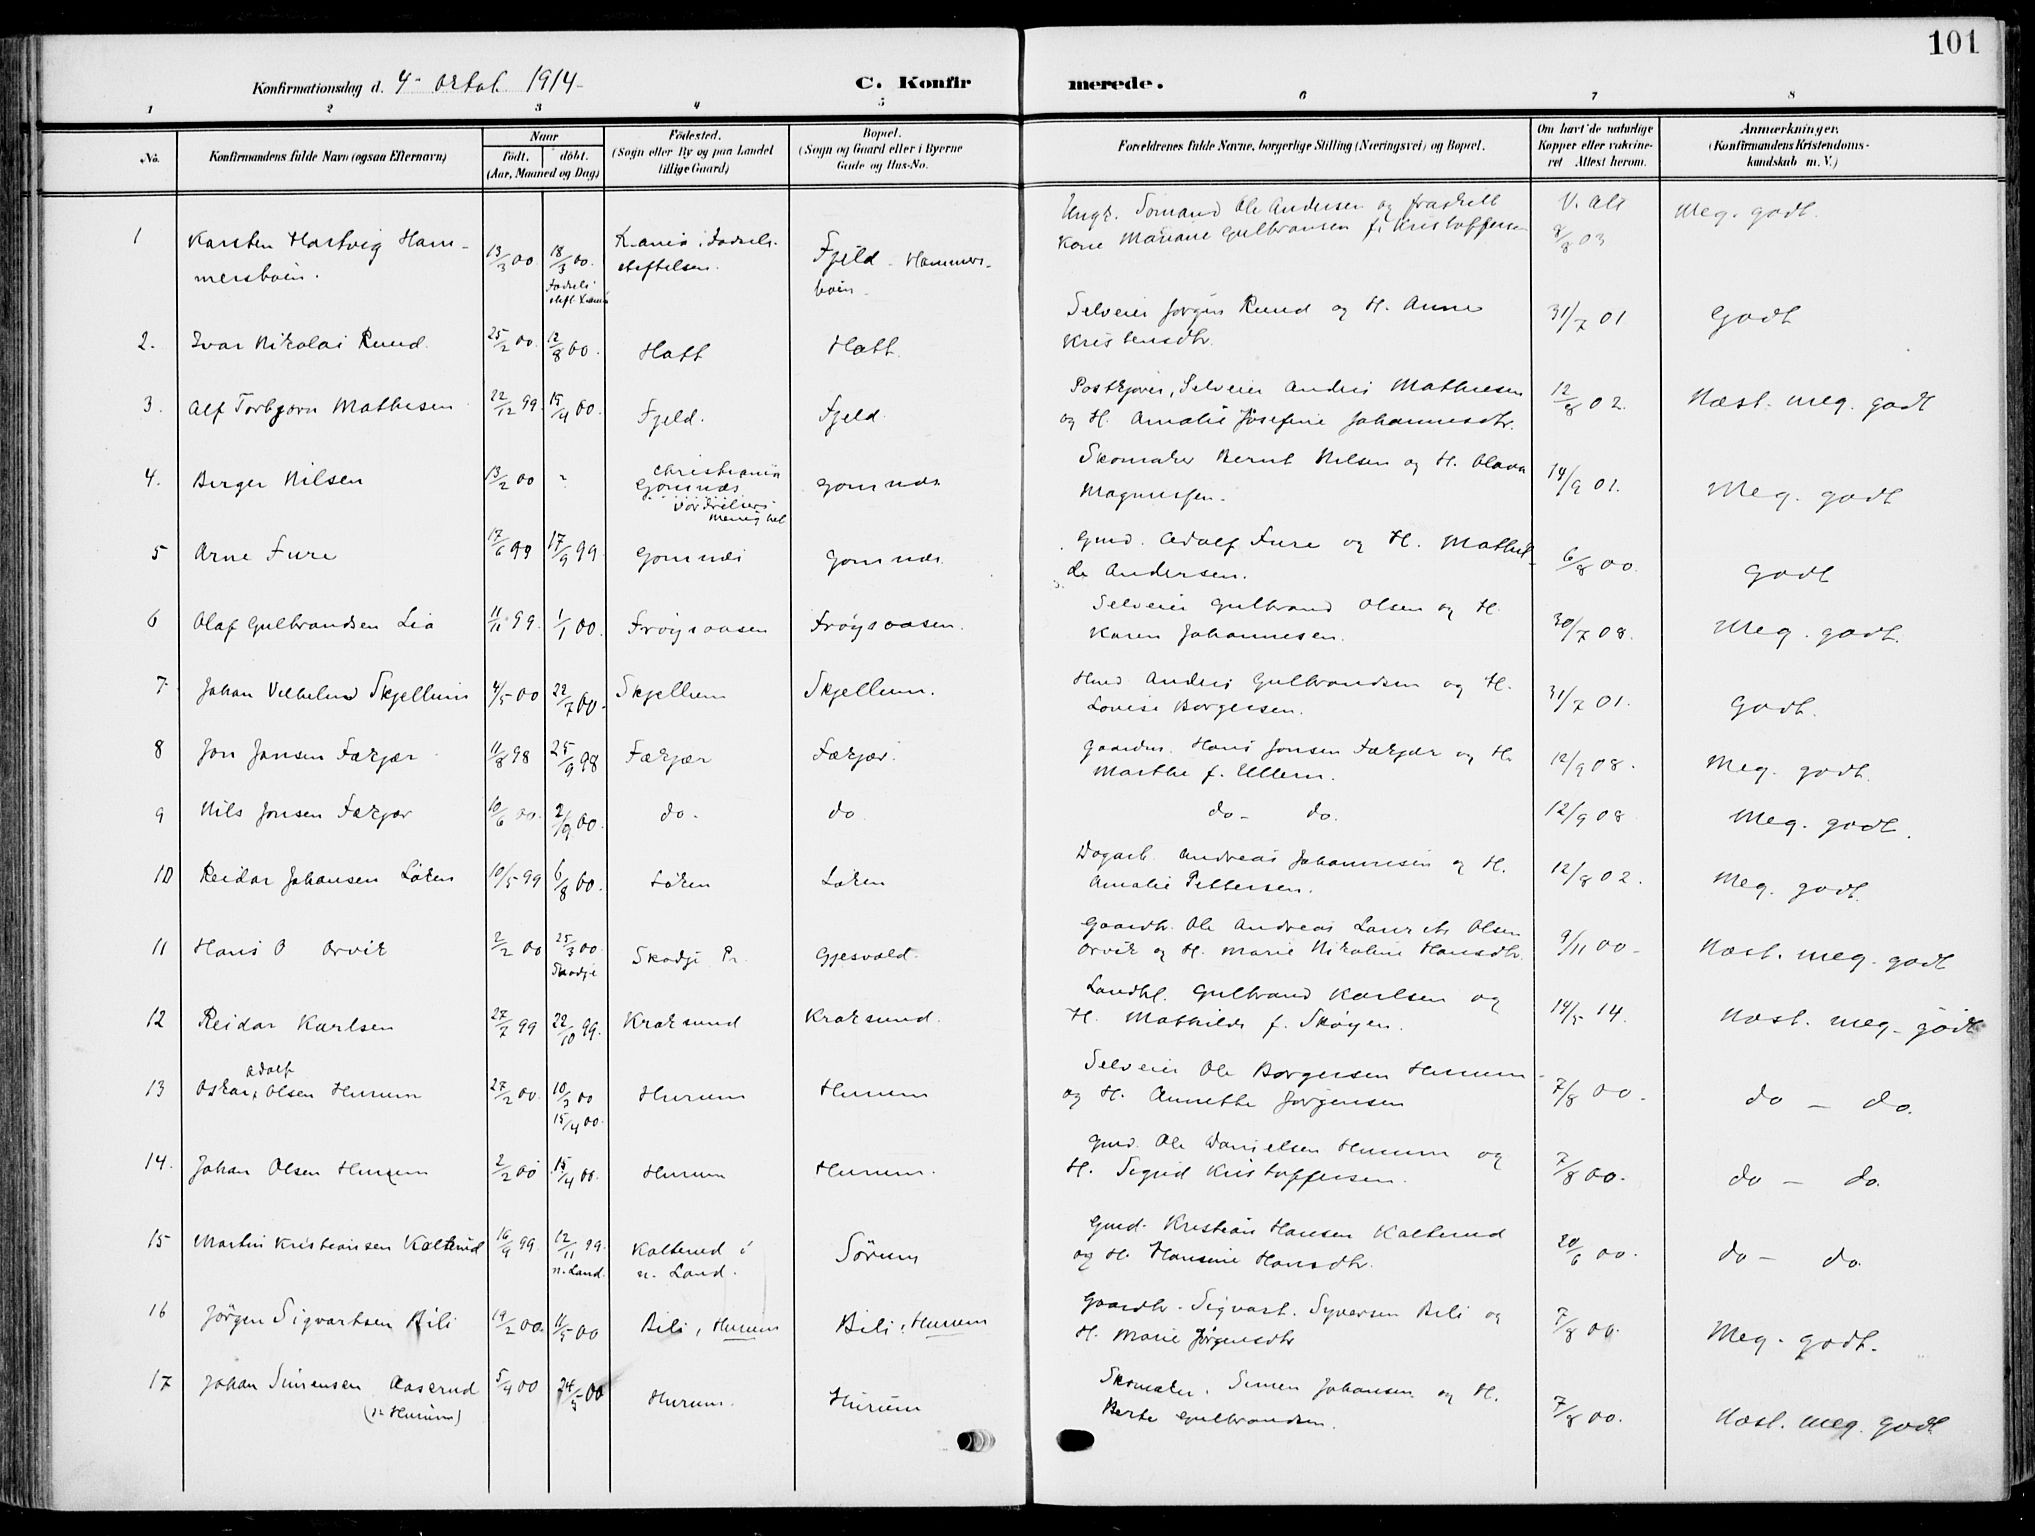 101
Konfirmationsdag d. 4- octob 1914-
C. Konfirmerede.
1 2 3 4 5 6 7 8
No.
Konfirmandens fulde Navn (ogsaa Efternavn)
Naar
födt. döbt.
(Aar, Maaned og Dag)
Födested.
(Sogn eller By og paa Landet
tillige Gaard)
Bopæl.
(Sogn og Gaard eller i Byerne
Gade og Hus-No.
Forældrenes fulde Navne, borgerlige Stilling (Næringsvei) og Bopæl.
Om havt de naturlige
Kopper eller vakcine-
ret Attest herom.
Anmærkninger.
(Konfirmandens Kristendoms-
kundskab m. V.)
1 Karsten Hartvig Ham-
mersboin. 13/3 00 18/3 00. Fødsels stift. K.ania K.ania Fødsels-
stiftelsen. Fjeld - Hammers-
boin - Ungk. Sømand Ole Andersen og fraskilt
Kone Mariane Gulbransen f. Kristoffersen V. Att 8/8 03 Meg. godt.
2. Ivar Nikolai Rund. 25/2 00. 12/8 00. Hatt Hatt. Selveier Jørgen Rund og H. Anne
Kristensdtr. 31/7 01 Godt
3. Alf Torbjørn Mathesen 22/12 99. 15/4 00. Fjeld. Fjeld. Selveier Andreas Mathiesen
og H. Amalie Josefine Johannesdtr. 12/8 02. Næst. meg. godt
4. Berger Nilsen 13/2 00 - Christiania
Gomnæs Gomnæs Skomaker Bernt Nilsen og H. Olava
Magnussen. 14/9 01. Meg. godt
5 Arne Fure 17/6 99 17/9 99 Gomnæs Gomnæs Gmd. Adolf Fure og H. Mathil-
de Andersen. 6/8 00. Godt
6 Olaf Gulbrandsen Lia 11/11 99. 1/1 00. Frøysaasen Frøysaasen. Selveier Gulbrand Olsen og H.
Karen Johannesen. 30/7 08. Meg. godt.
7 Johan Vilhelm Skjellum 4/5 00 22/7 00. Skjellum Skjellum. Andreas Gulbrandsen og H.
Lovise Borgersen. 31/7 01. Godt.
8 Jon Jonsen Fækjær 11/8 98 25/9 98 Fækjær Fækjær. Gaardm. Hans Jonsen Fækjær og H.
Marthe f. Ullern. 12/9 08. Meg. godt.
9 Nils Jonsen Fækjær 10/6 00. 2/9 00. do. do do - do. 12/9 08 Meg. godt.
10 Reidar Johansen Løken 10/5 99 6/8 00. Løken Løken Dagarb. Andreas Johannesen og H.
Amalie Pettersen. 12/8 02. Meg. godt.
11 Hans O Orvik 2/2 00 25/3 00. Skodje Skodje Pr. Gjesvold. Gaardbr. Ole Andreas Laurits Olsen
Orvik og H. Marie Nikoline Hansdtr. 9/11 00 - Næst. meg. godt
12 Reidar Karlsen 27/7 99 22/10 99. Kroksund Kroksund. Landhl. Gulbrand Karlsen og
H. Mathilde f. Skøyen. 14/5 14. Næst. meg. godt
13 Adolf
Oskar x Olsen Hurum 27/2 00. 10/3 00
15/4 00. Hurum Hurum Selveier Ole Borgersen Hurum
og H. Annette Jørgensen 7/8 00. do - do.
14. Johan Olsen Hurum 2/2 00 15/4 00. Hurum Hurum. Gmd. Ole Danielsen Hurum og
H. Sigrid Kristoffersen. 7/8 00. do - do.
15 Martin Kristiansen Kolterud 16/9 99. 12/11 99. n. Land. Kolterud i
n. Land. Sørum Gmd. Kristian Hansen Kolterud
og H. Hansine Hansdtr. 20/6 00. do - do.
16 Jørgen Sigvartsen Bili 19/2 00. 11/5 00 Bili, Hurum Bili, Hurum Gaardbr. Sigvart. Syversen Bili og
H. Marie Jørgensdtr 7/8 00. Meg. godt.
17 Johan Simensen Aaserud
(n Hurum) 5/4 00 24/5 00 Hurum. Hurum Skomaker. Simen Johansen og H.
Berte Gulbrandsen. 7/8 00. Næst. meg. godt